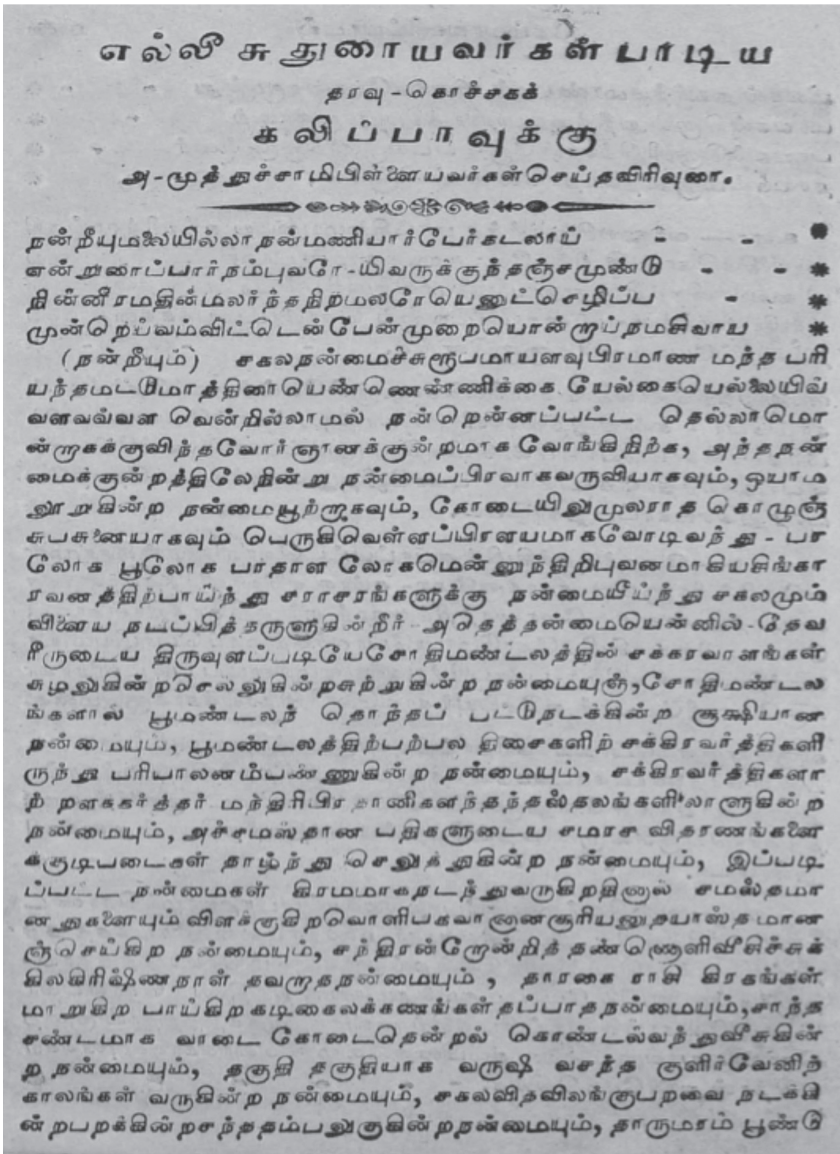 எல்லீசுதுரையவர்கள்பாடிய
தரவு-கொச்சகக்
கலிப்பாவுக்கு
அ-முத்துச்சாமிபிள்ளையவர்கள்செய்தவிரிவுரை.
நன்றீயுமலையில்லாநன்மணியார்பேர்கடலாய் - - *
என்றுரைப்பார்நம்புவரோ-யிவருக்குந்தஞ்சமுண்டு - - *
நின்னீரமதின்மலர்ந்தநிற்மலரோயெனுட்செழிப்ப - *
முன்றெய்வம்விட்டென்பேன்முறையொன்றாய்நமசிவாய *
(நன்றீயும்) சகலநன்மைச்சுரூபமாயளவுபிரமாண மந்த பரி
யந்தமட்டுமாத்திரையெண்ணெண்ணிக்கை யேல்கையெல்லையிவ்
வளவவ்வள வென்றில்லாமல் நன்றென்னப்பட்ட தெல்லாமொ
ன்றாகக்குவிந்தவோர்ஞானக்குன்றமாக வோங்கிநிற்க, அந்தநன்
மைக்குன்றத்திலேநின்று நன்மைப்பிரவாகவருவியாகவும், ஒயாம
லூறுகின்ற நன்மையூற்றாகவும், கோடையிலுமுலராத கொழுஞ்
சுபசுனையாகவும் பெருகிவெள்ளப்பிரளயமாகவோடிவந்து - பர
லோக பூலோக பாதாள லோகமென்னுந்திறிபுவனமாகியசிங்கா
ரவனத்திற்பாய்ந்து சராசரங்களுக்கு நன்மையீய்ந்து சகலமும்
விளைய நடப்பித்தருளுகின்றீர்-அதெத்தன்மையென்னில்-தேவ
ரீருடைய திருவுளப்படியேசோதிமண்டலத்தின் சக்கரவாளங்கள்
சுழலுகின்றசெலலுகின்றசுற்றுகின்ற நன்மையுஞ்,சோதிமண்டல
ங்களால் பூமண்டலந் தொந்தப் பட்டுநடக்கின்ற சூக்ஷியான
நன்மையும், பூமண்டலத்திற்பற்பல திசைகளிற் சக்கிரவர்த்திகளி
ருந்து பரியாலனம்பண்ணுகின்ற நன்மையும், சக்கிரவர்த்திகளா
ற் றளகர்த்தர் மந்திரிபிரதானிகளந்தந்தஸ்தலங்களிலாளுகின்ற
நன்மையும், அச்சமஸ்தான பதிகளுடைய சமரச விதரணங்களை
க்குடிபடைகள் தாழ்ந்து செலுத்துகின்ற நன்மையும், இப்படி
ப்பட்ட நன்மைகள் கிரமமாகநடந்துவருகிறதினால் சமஸ்தமா
னதுகளையும்விளக்குகிறவொளிபகவானானசூரியனுதயாஸ்தமான
ஞ்செய்கிற நன்மையும், சந்திரன்றோன்றித்தண்ணொளிவீசிச்சுக்
கிலகிரிஷ்ணநாள் தவறாதநன்மையும் , தாரகை ராசி கிரகங்கள்
மாறுகிற பாய்கிறகடிகைலக்கணங்கள்தப்பாதநன்மையும்,சாந்த
சண்டமாக வாடை கோடைதென்றல் கொண்டல்வந்துவீசுகின்
ற நன்மையும், தகுதி தகுதியாக வருஷ வசந்த குளிர்வேனிற்
காலங்கள் வருகின்ற நன்மையும், சகலவிதவிலங்குபறவை நடக்கி
ன்றபறக்கின்றசந்ததம்பலுகுகின்றநன்மையும், தாருமரம் பூண்டு